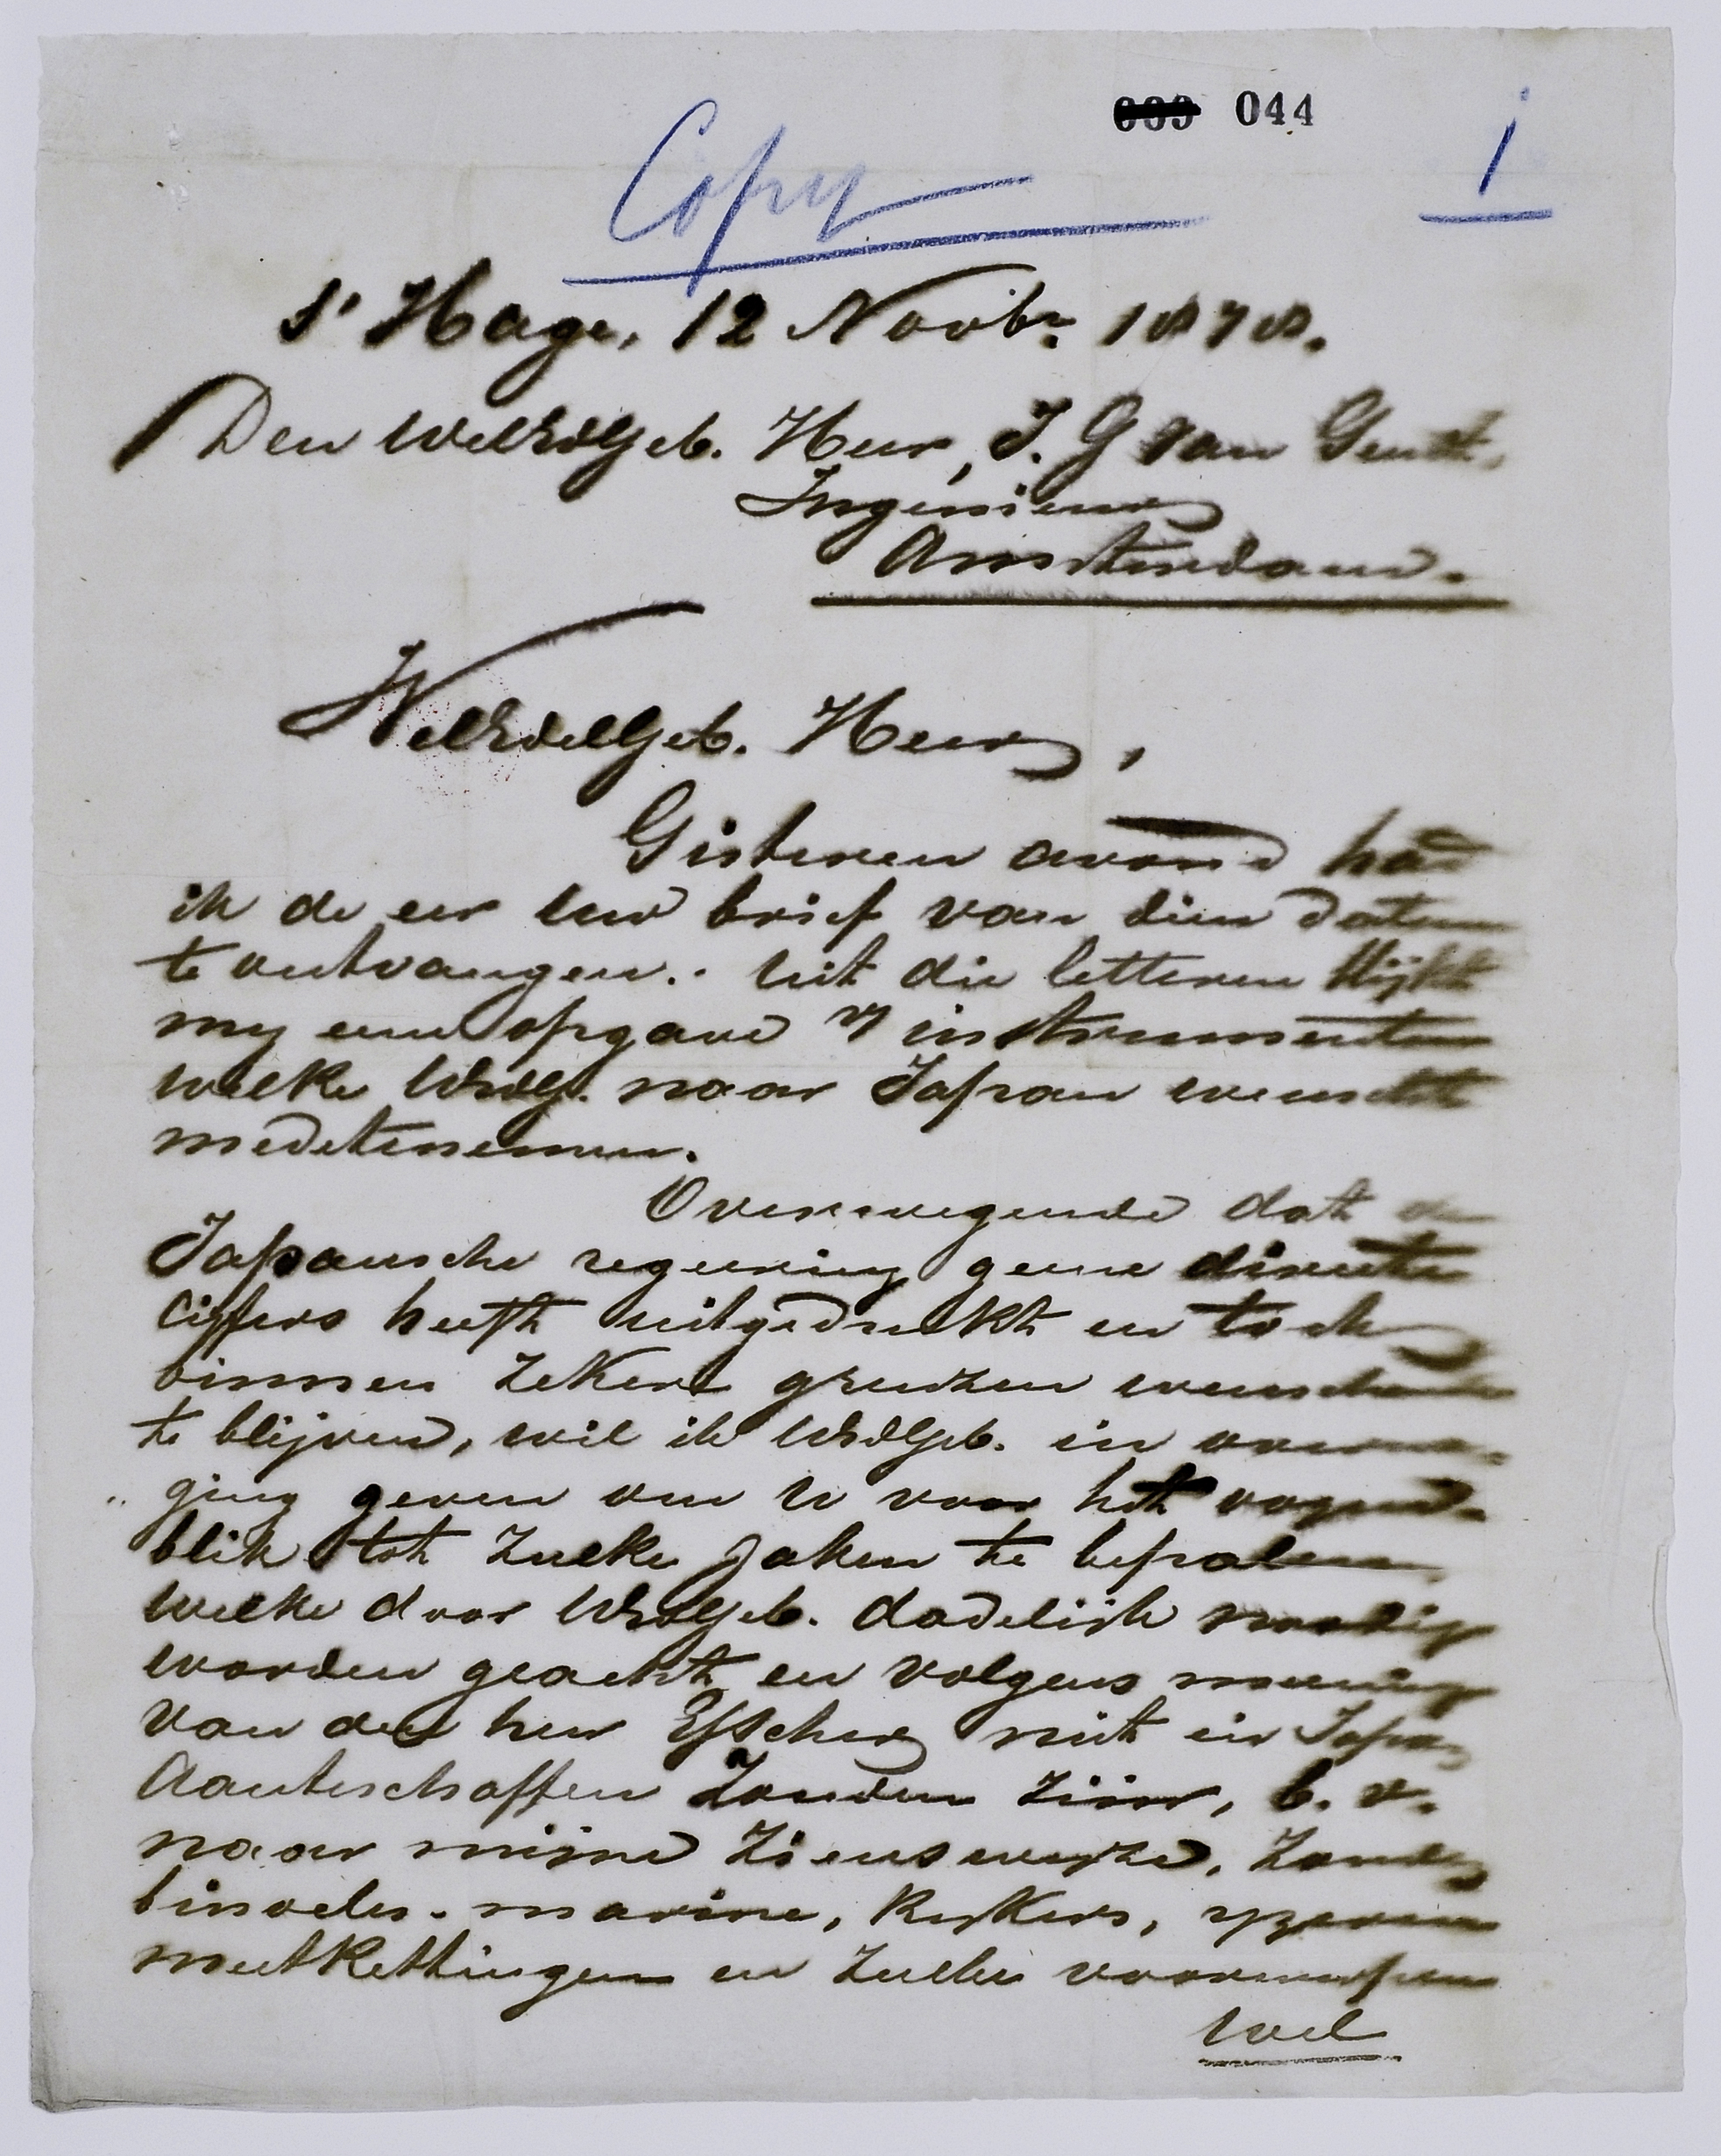 039 044
Copy 1
s' Hage, 12 Novbr. 1878.
Den WelEdlGeb. Heer, J. G van Gendt,
Ingenieur
Amsterdam.
WelEdelGeb. Heer,
Gisteren avond had
ik de eer uw brief van dien datum
te ontvangen.. Uit die letteren blijkt
my eene opgave v/ instrumenten
welke UEdlg. naar Japan wenscht
medetenemen.
Overwegende dat de
Japansche regeering geene directe
cijffers heeft uitgedrukt en toch
binnen zekere grenzen wenschende
te blijven, wil ik UEdlGeb. in overwe-
ging geven om U voor het oogen-
blik tot zulke zaken te bepalen
welke door UEdlGeb. dadelijk noodig
worden geacht en volgens meening
van den heer Escher niet in Japan
aanteschaffen zouden zijn, b. v.
naar mijne zienswijze, zouden
binocles-marine, kijkers, yzeren
meetkettingen en zulke voorwerpen
wel